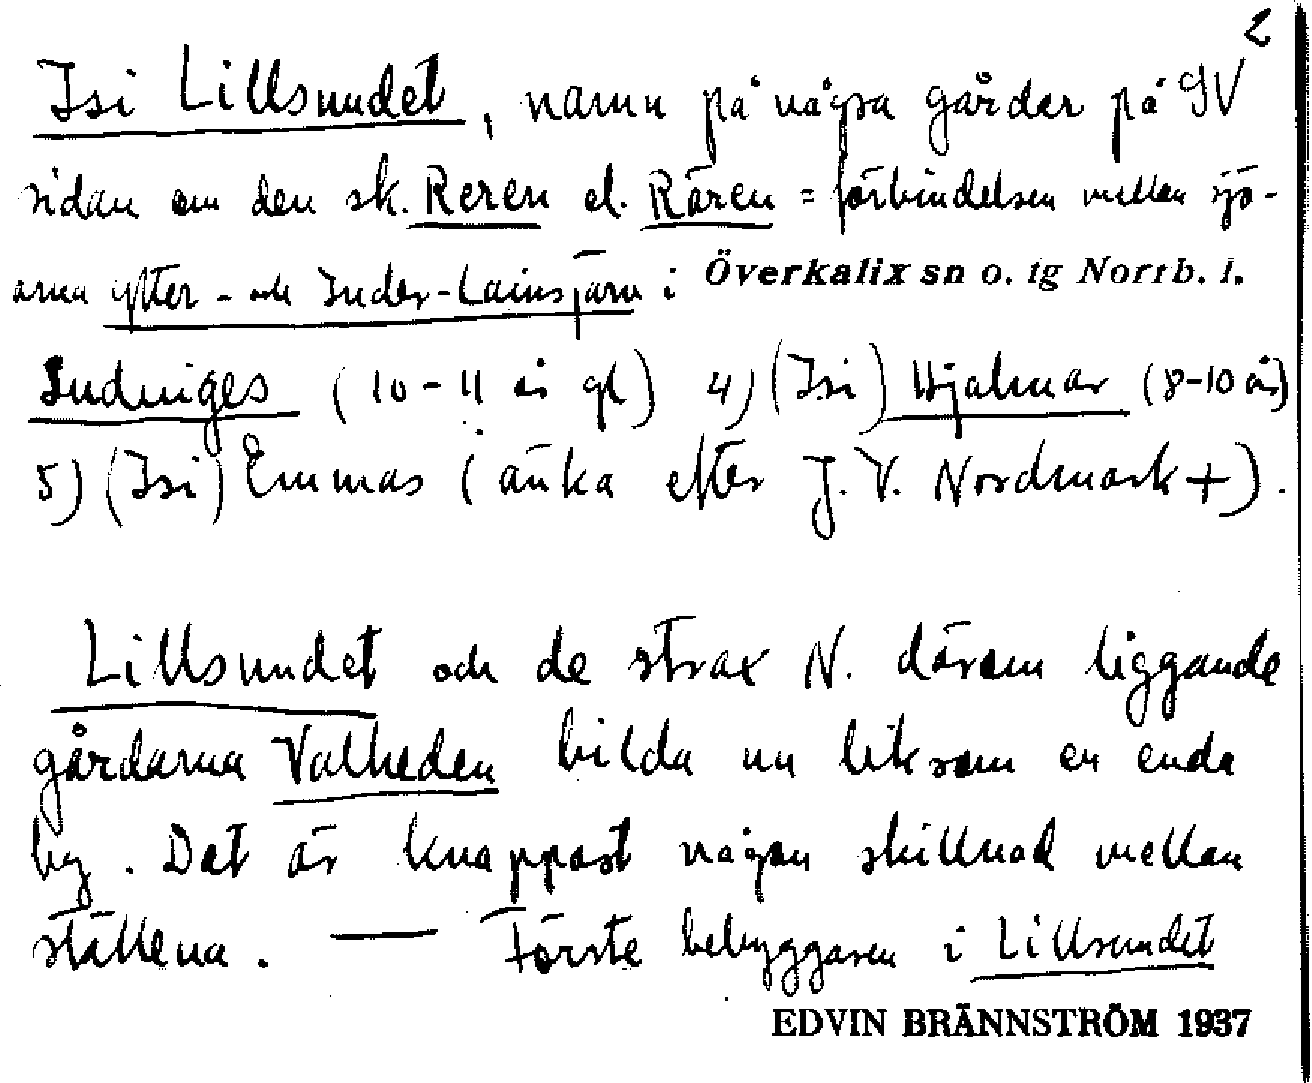 2
Isi Lillsundet, namn på några gårder på SV
sidan om den sk. Reren el. Rären = förbindelsen mellan sjö-
arna ytter- och Inder-Lainsjärv i Överkalix sn o. tg Norrb. l.
Ludviges (10-11 år gl) 4) (Isi) Hjalmar (8-10 år)
5) (Isi) Emmas (änka efter J. V. Nordmark +).
Lillsundet och de strax N. därom liggande
gårdarna Valheden bilda nu liksom en enda
by. Det är knappast någon skillnad mellan
ställena. — Förste bebyggaren i Lillsundet
EDVIN BRÄNNSTRÖM 1937